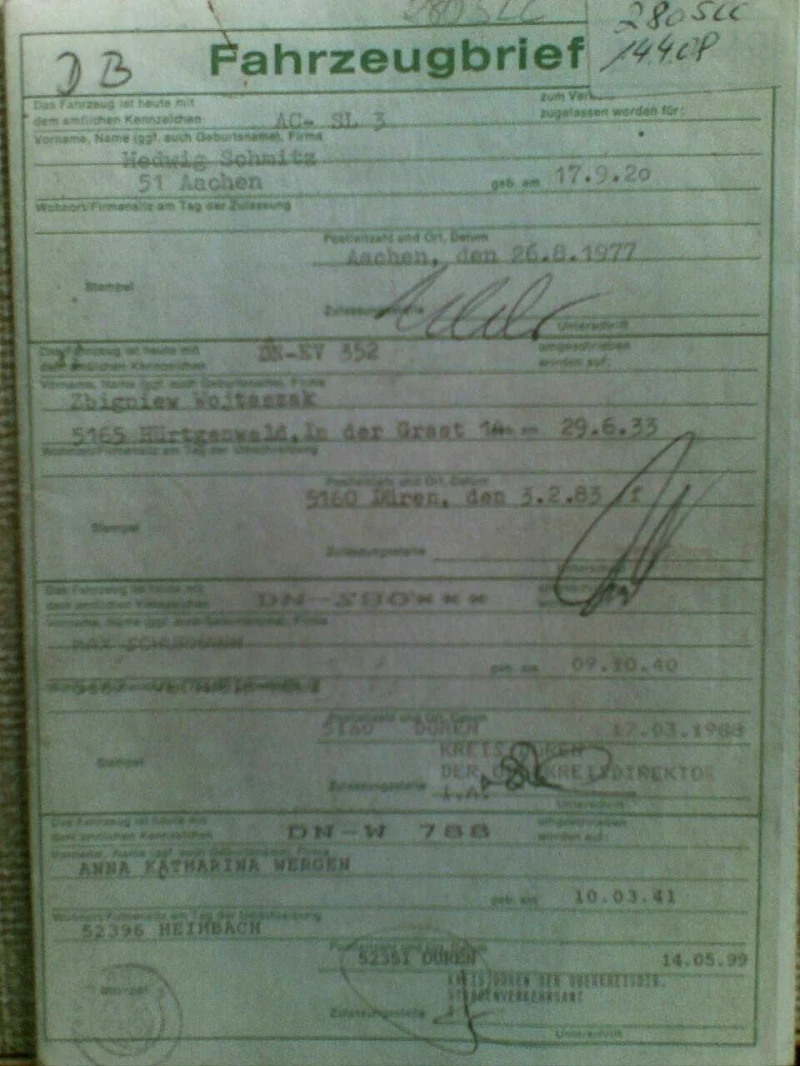 280 SLC
280 SLC
14.4.08
DB
Fahrzeugbrief
Das Fahrzeug ist heute mit
dem amtlichen Kennzeichen AC- SL 3 zugelassen worden für:
Vorname, Name (ggf. auch Geburtsname), Firma
Hedwig Schmitz
51 Aachen geb. am 17.9.20
Wohnort/Firmensitz am Tag der Zulassung
Postleitzahl und Ort, Datum
Aachen, den 26.8.1977
Stempel
Zulassungsstelle
Unterschrift
Das Fahrzeug ist heute mit umgeschrieben
dem amtlichen Kennzeichen DN-EV 352 worden auf:
Vorname, Name (ggf. auch Geburtsname), Firma
Zbigniew Wojtaszak
5165 Hürtgenwald, In der Graat 29.6.33
Wohnort/Firmensitz am Tag der Umschreibung
Postleitzahl und Ort, Datum
5160 Düren, den 3.2.83
Stempel
Zulassungsstelle
Das Fahrzeug ist heute mit
dem amtlichen Kennzeichen DN-280***
Vorname, Name (ggf. auch Geburtsname), Firma
MAX
geb. am 09.10.40
Postleitzahl und Ort, Datum
5160 DÜREN 17.03.1988
KREIS DÜREN
Stempel DER OBERKREISDIREKTOR
Zulassungsstelle I.A.
Unterschrift
Das Fahrzeug ist heute mit umgeschrieben
dem amtlichen Kennzeichen DN-W 788 worden auf:
Vorname, Name (ggf. auch Geburtsname), Firma
ANNA KATHARINA WERGEN
geb. am 10.03.41
Wohnort/Firmensitz am Tag der Umschreibung
52396 HEIMBACH
Postleitzahl und Ort, Datum
52351 DÜREN 14.05.99
KREIS DÜREN DER OBERKREISDIR.
Stempel STRASSENVERKEHRSAMT
Zulassungsstelle
Unterschrift